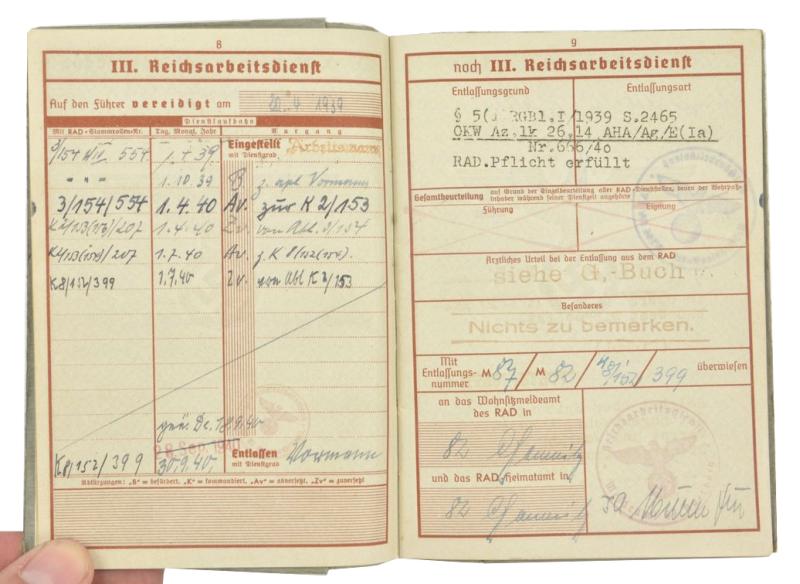 8
III. Reichsarbeitsdienst
Auf den Führer vereidigt am 20. 4 1939
Dienstlaufbahn
Mit RAD-Stammrollen-Nr. Tag, Monat, Jahr Vorgang
554 1.4.39 Eingestellt mit Dienstgrad Arbeitsmann
" " 1.10.39 B z. apl Vormann
3/154/554 1.4.40 Av. zur K 2/153
/207 1.4.40 Zv. von Abl. 3/154
/207 1.7.40 Av. z. K 8/152
K8/152/399 1.7.40 Zv. von Abl K 2/153
28. Sep. 1940
K8/152/399 30.9.40. Entlassen mit Dienstgrad Vormann
Abkürzungen: „B“ = befördert, „K“ = kommandiert, „Av“ = abversetzt, „Zv“ = zuversetzt
9
noch III. Reichsarbeitsdienst
Entlassungsgrund Entlassungsart
§ 5( RGBl.I/1939 S.2465
OKW Az.1k 26.14 AHA/Ag/E(Ia)
Nr.666/40
RAD.Pflicht erfüllt
Gesamtbeurteilung auf Grund der Einzelbeurteilung aller RAD-Dienststellen, denen der Wehrpaß-
inhaber während seiner Dienstzeit angehörte
Führung Eignung
Ärztliches Urteil bei der Entlassung aus dem RAD
siehe G.-Buch
Besonderes
Nichts zu bemerken.
Mit Entlassungs-
nummer M 87/ M 82/ K8/152/ 399 überwiesen
an das Wohnsitzmeldeamt
des RAD in
82 Chemnitz
und das RAD Heimatamt in
82 Chemnitz